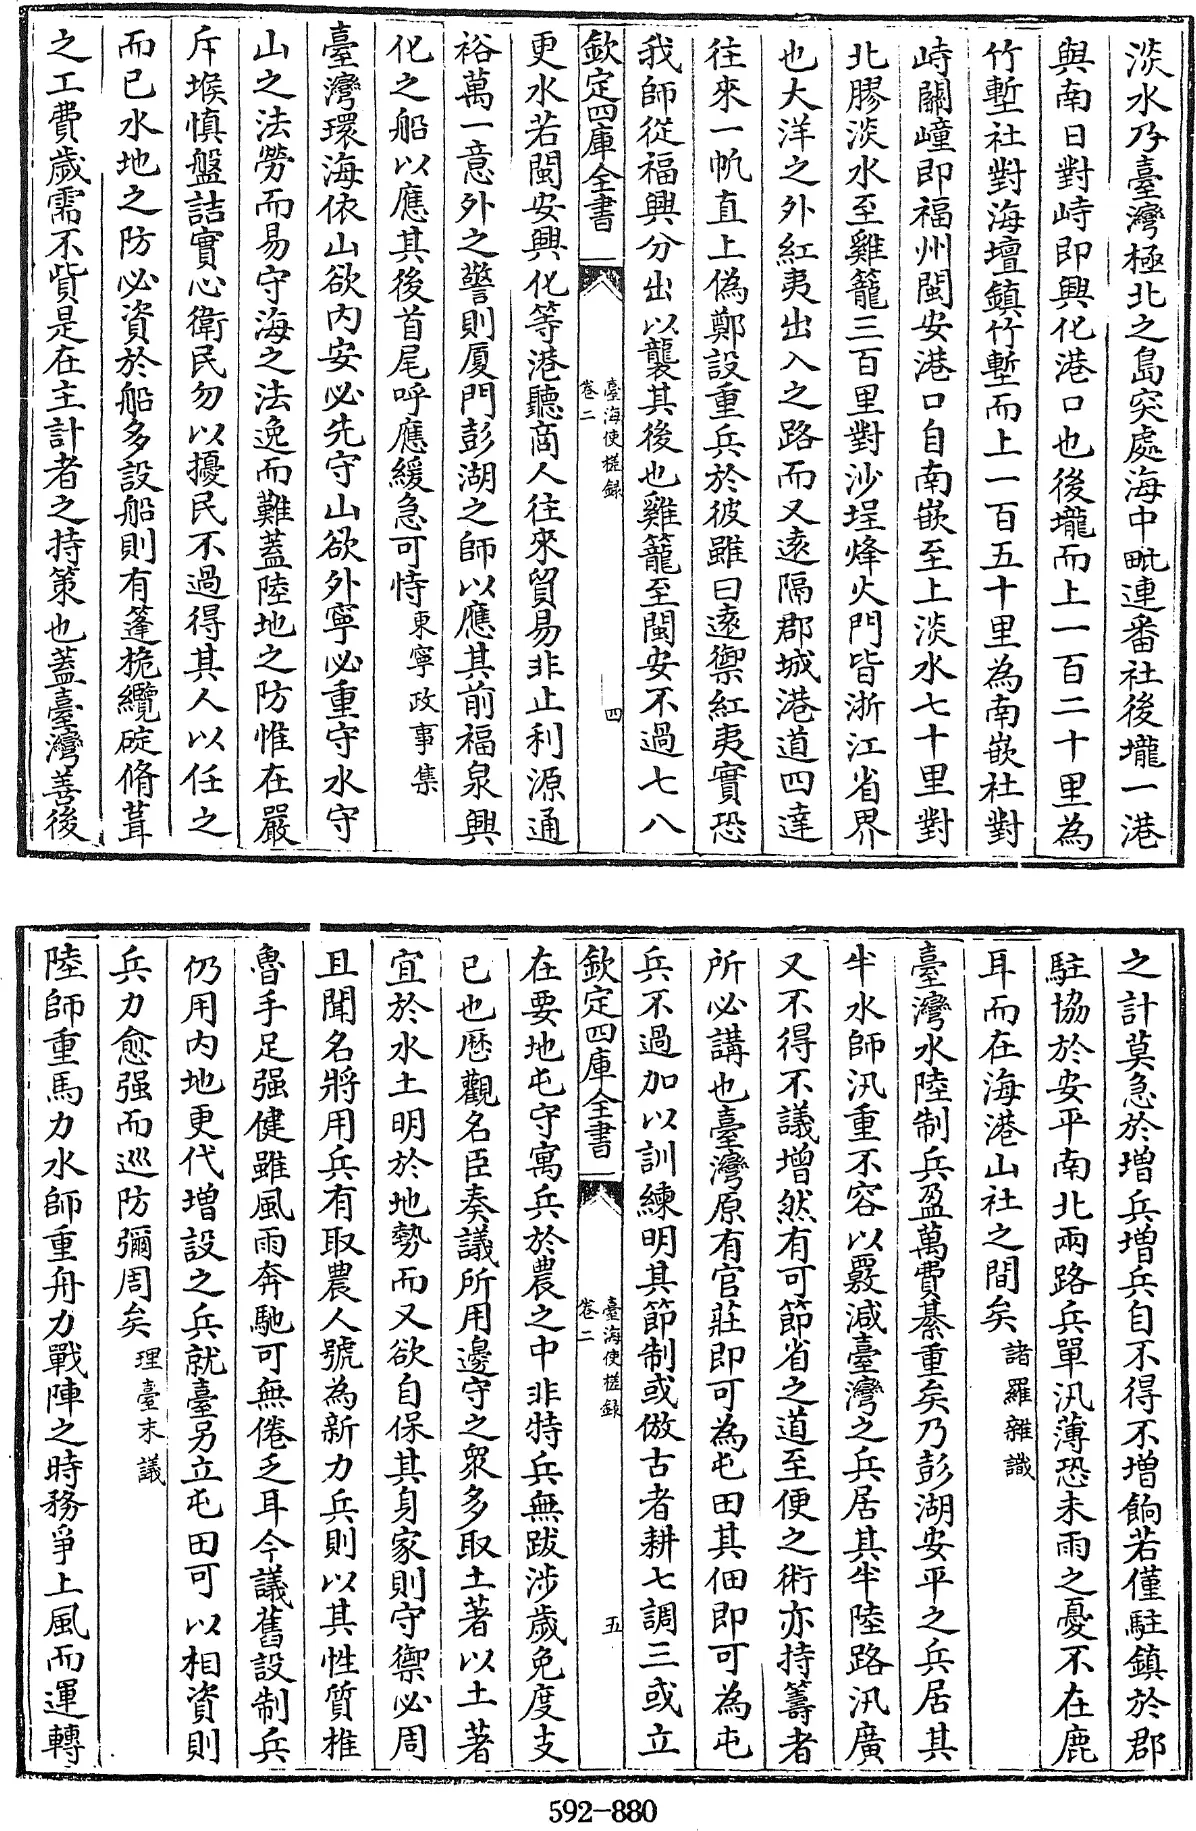 淡水乃臺灣極北之島突處海中毗連番社後壠一港
與南日對峙即興化港口也後壠而上一百二十里為
竹塹社對海壇鎮竹塹而上一百五十里為南嵌社對
峙關嶂即福州閩安港口自南嵌至上淡水七十里對
北膠淡水至雞籠三百里對沙埕烽火門皆浙江省界
也大洋之外紅夷出入之路而又遠隔郡城港道四達
往來一帆直上偽鄭設重兵於彼雖曰遠禦紅夷實恐
我師從福興分出以襲其後也雞籠至閩安不過七八
欽定四庫全書
臺海使槎錄
卷二
四
更水若閩安興化等港聽商人往來貿易非止利源通
裕萬一意外之警則厦門彭湖之師以應其前福泉興
化之船以應其後首尾呼應緩急可恃東寧政事集
臺灣環海依山欲內安必先守山欲外寧必重守水守
山之法勞而易守海之法逸而難蓋陸地之防惟在嚴
斥堠慎盤詰實心衛民勿以擾民不過得其人以任之
而已水地之防必資於船多設船則有篷桅纜碇脩葺
之工費歲需不貲是在主計者之持策也蓋臺灣善後
之計莫急於增兵增兵自不得不增餉若僅駐鎮於郡
駐協於安平南北兩路兵單汛薄恐未雨之憂不在鹿
耳而在海港山社之間矣諸羅雜識
臺灣水陸制兵盈萬費綦重矣乃彭湖安平之兵居其
半水師汛重不容以覈減臺灣之兵居其半陸路汛廣
又不得不議增然有可節省之道至便之術亦持籌者
所必講也臺灣原有官莊即可為屯田其佃即可為屯
兵不過加以訓練明其節制或倣古者耕七調三或立
欽定四庫全書
臺海使槎錄
卷二
五
在要地屯守寓兵於農之中非特兵無跋涉歲免度支
已也歷觀名臣奏議所用邊守之眾多取土著以土著
宜於水土明於地勢而又欲自保其身家則守禦必周
且聞名將用兵有取農人號為新力兵則以其性質椎
魯手足强健雖風雨奔馳可無倦乏耳今議舊設制兵
仍用內地更代增設之兵就臺另立屯田可以相資則
兵力愈强而巡防彌周矣理臺末議
陸師重馬力水師重舟力戰陣之時務爭上風而運轉
592-880